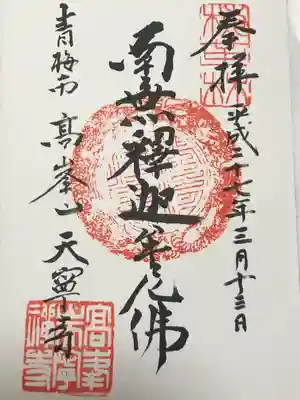 奉拝 平成二十七年三月十三日
南無釋迦牟尼佛
青梅市 高峯山 天寧寺